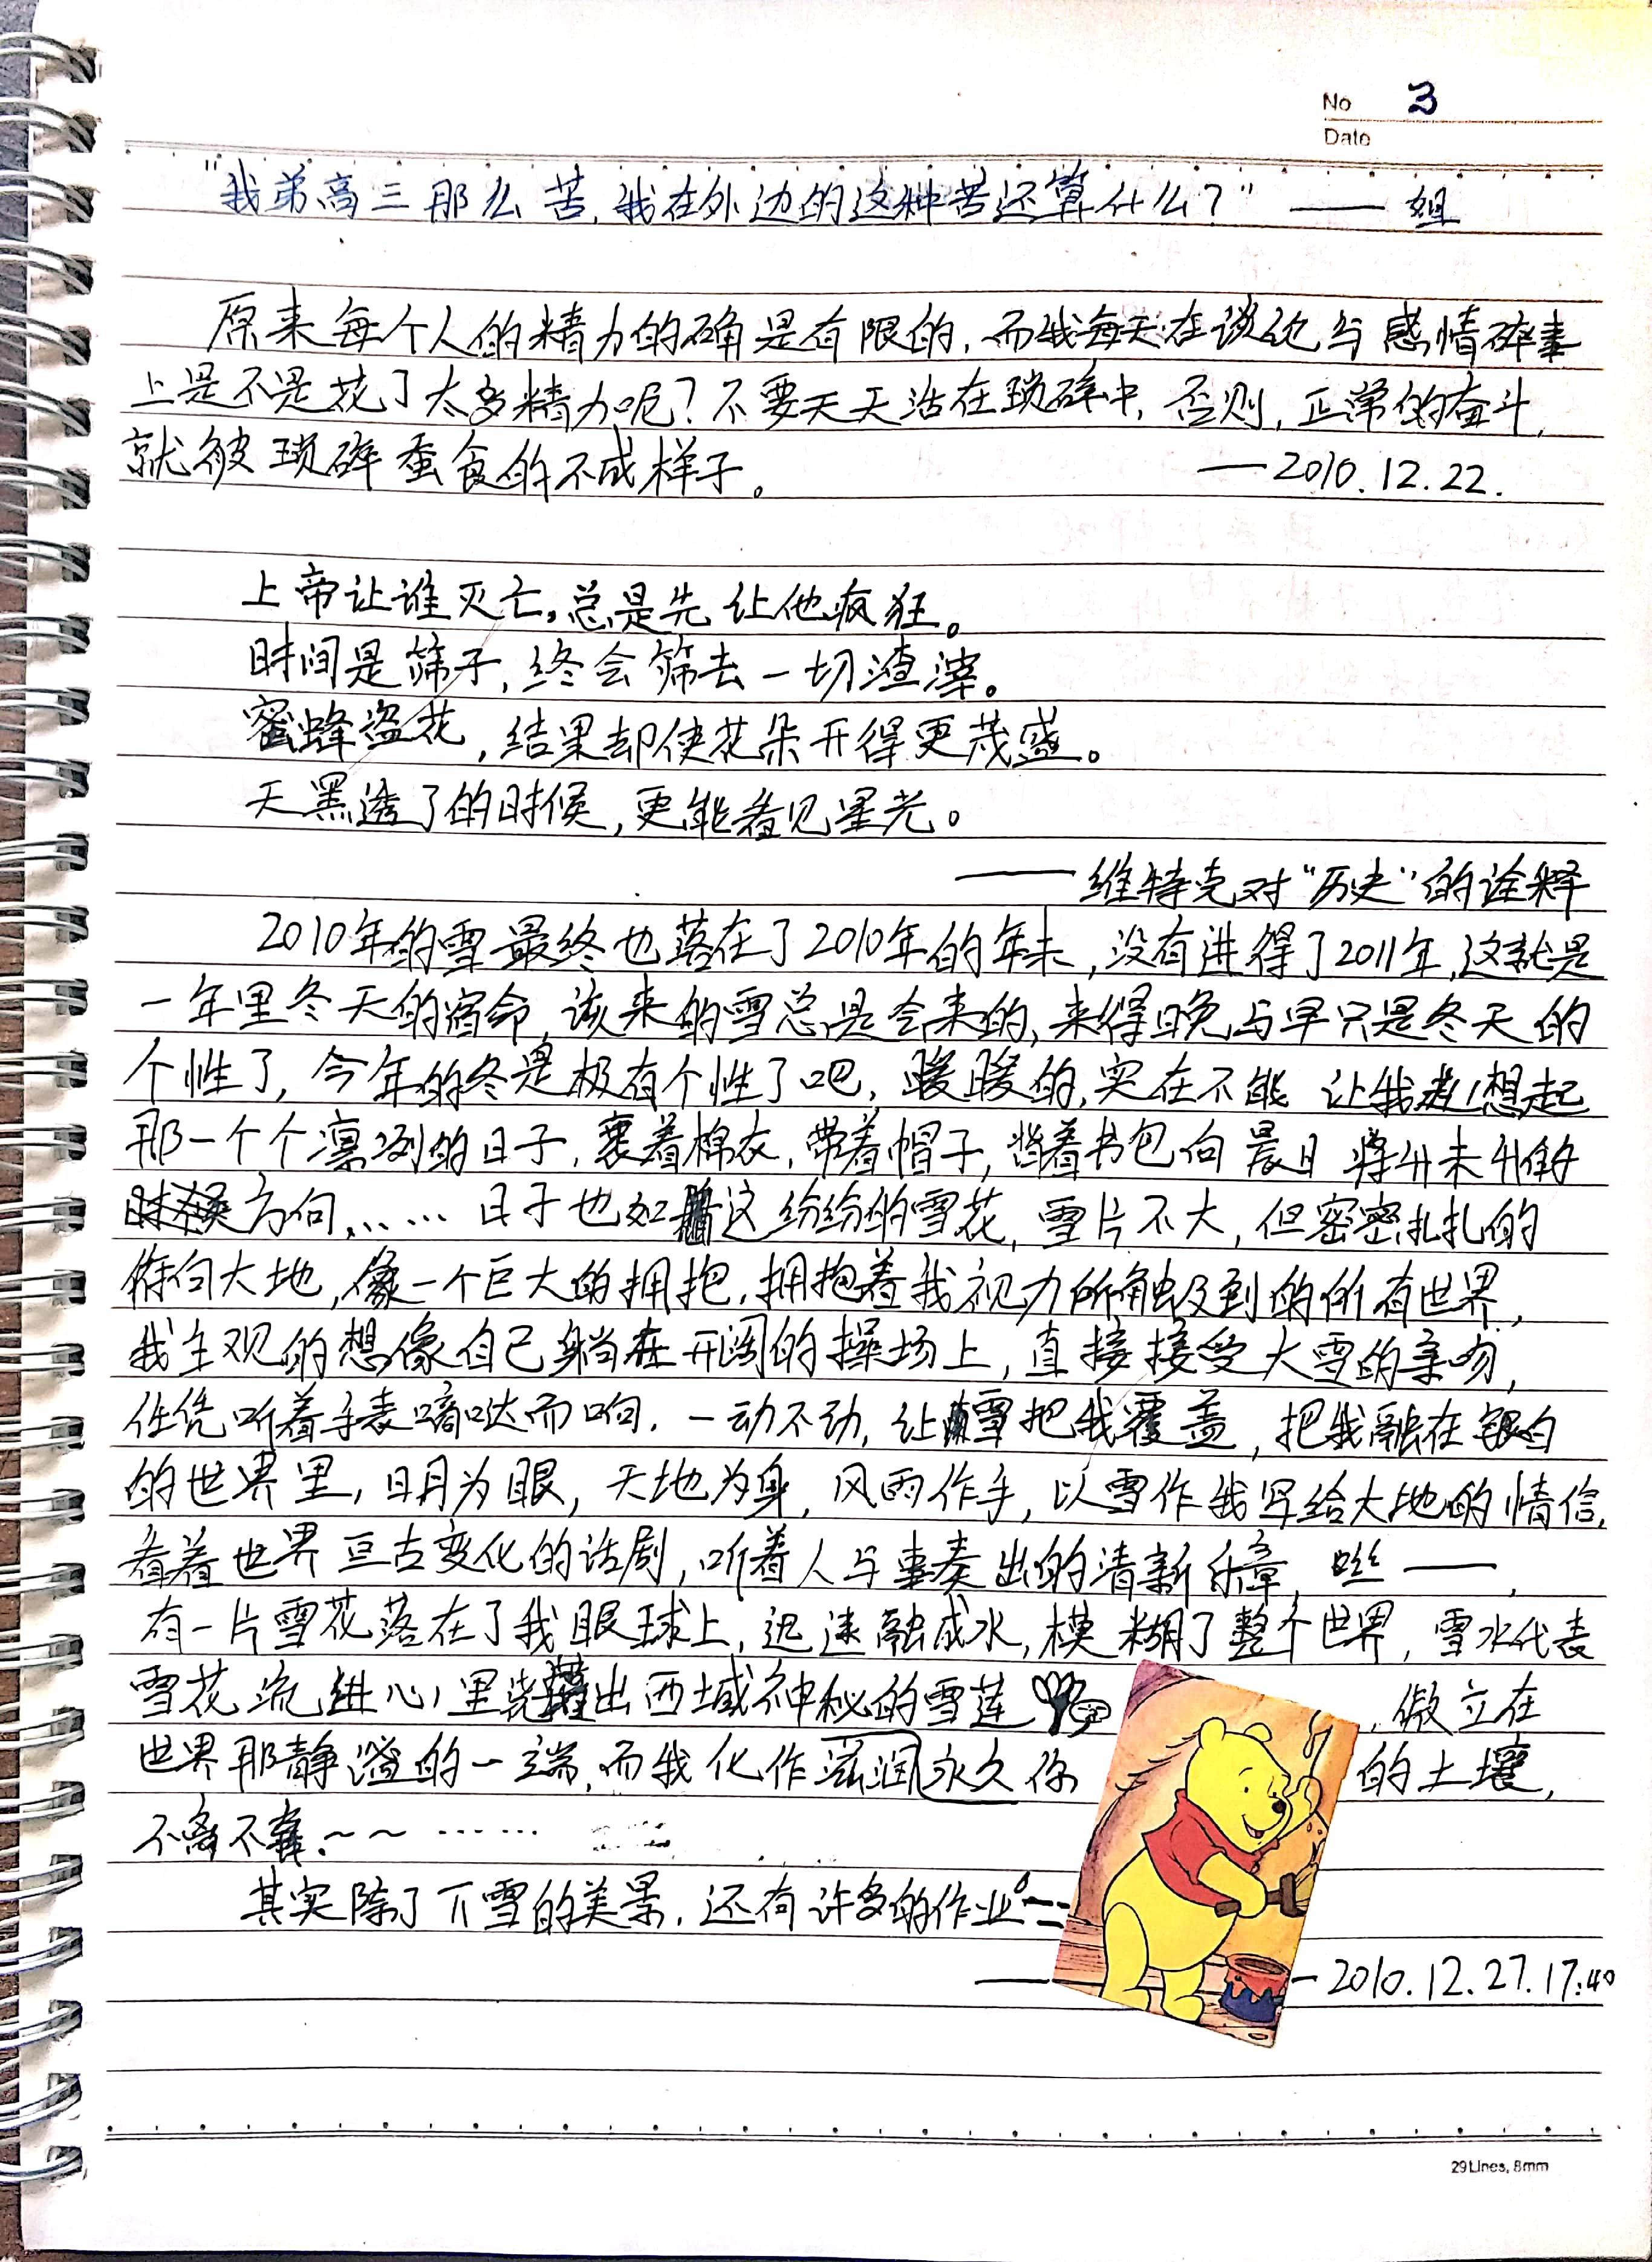 No 3
Date
"我弟高三那么苦,我在外边的这种苦还算什么?" —— 姐
原来每个人的精力的确是有限的,而我每天在谈论与感情碎事
上是不是花了太多精力呢?不要天天活在琐碎中,否则,正常的奋斗,
就被琐碎蚕食的不成样子。 ——2010.12.22.
上帝让谁灭亡,总是先让他疯狂。
时间是筛子,终会筛去一切渣滓。
蜜蜂盗花,结果却使花朵开得更茂盛。
天黑透了的时候,更能看见星光。
——维特克对"历史"的诠释
2010年的雪最终也落在了2010年的年末,没有进得了2011年,这就是
一年里冬天的宿命,该来的雪总是会来的,来得晚与早只是冬天的
个性了,今年的冬是极有个性了吧,暖暖的,实在不能让我想起
那一个个凛冽的日子,裹着棉衣,带着帽子,背着书包向晨日将升未升的
方向,…… 日子也如这纷纷的雪花,雪片不大,但密密扎扎的
俯向大地,像一个巨大的拥抱,拥抱着我视力所触及到的所有世界,
我主观的想像自己躺在开阔的操场上,直接接受大雪的亲吻,
任凭听着手表嘀哒而响,一动不动,让雪把我覆盖,把我融在银白
的世界里,日月为眼,天地为身,风雨作手,以雪作我写给大地的情信,
看着世界亘古变化的话剧,听着人与事奏出的清新乐章,咝——,
有一片雪花落在了我眼球上,迅速融成水,模糊了整个世界,雪水代表
雪花流进心里浇灌出西域神秘的雪莲 ,傲立在
世界那静谧的一端,而我化作滋润永久你 的土壤,
不离不弃.~~ ……
其实除了下雪的美景,还有许多的作业。
——2010.12.27.17:40
29Lines, 8mm